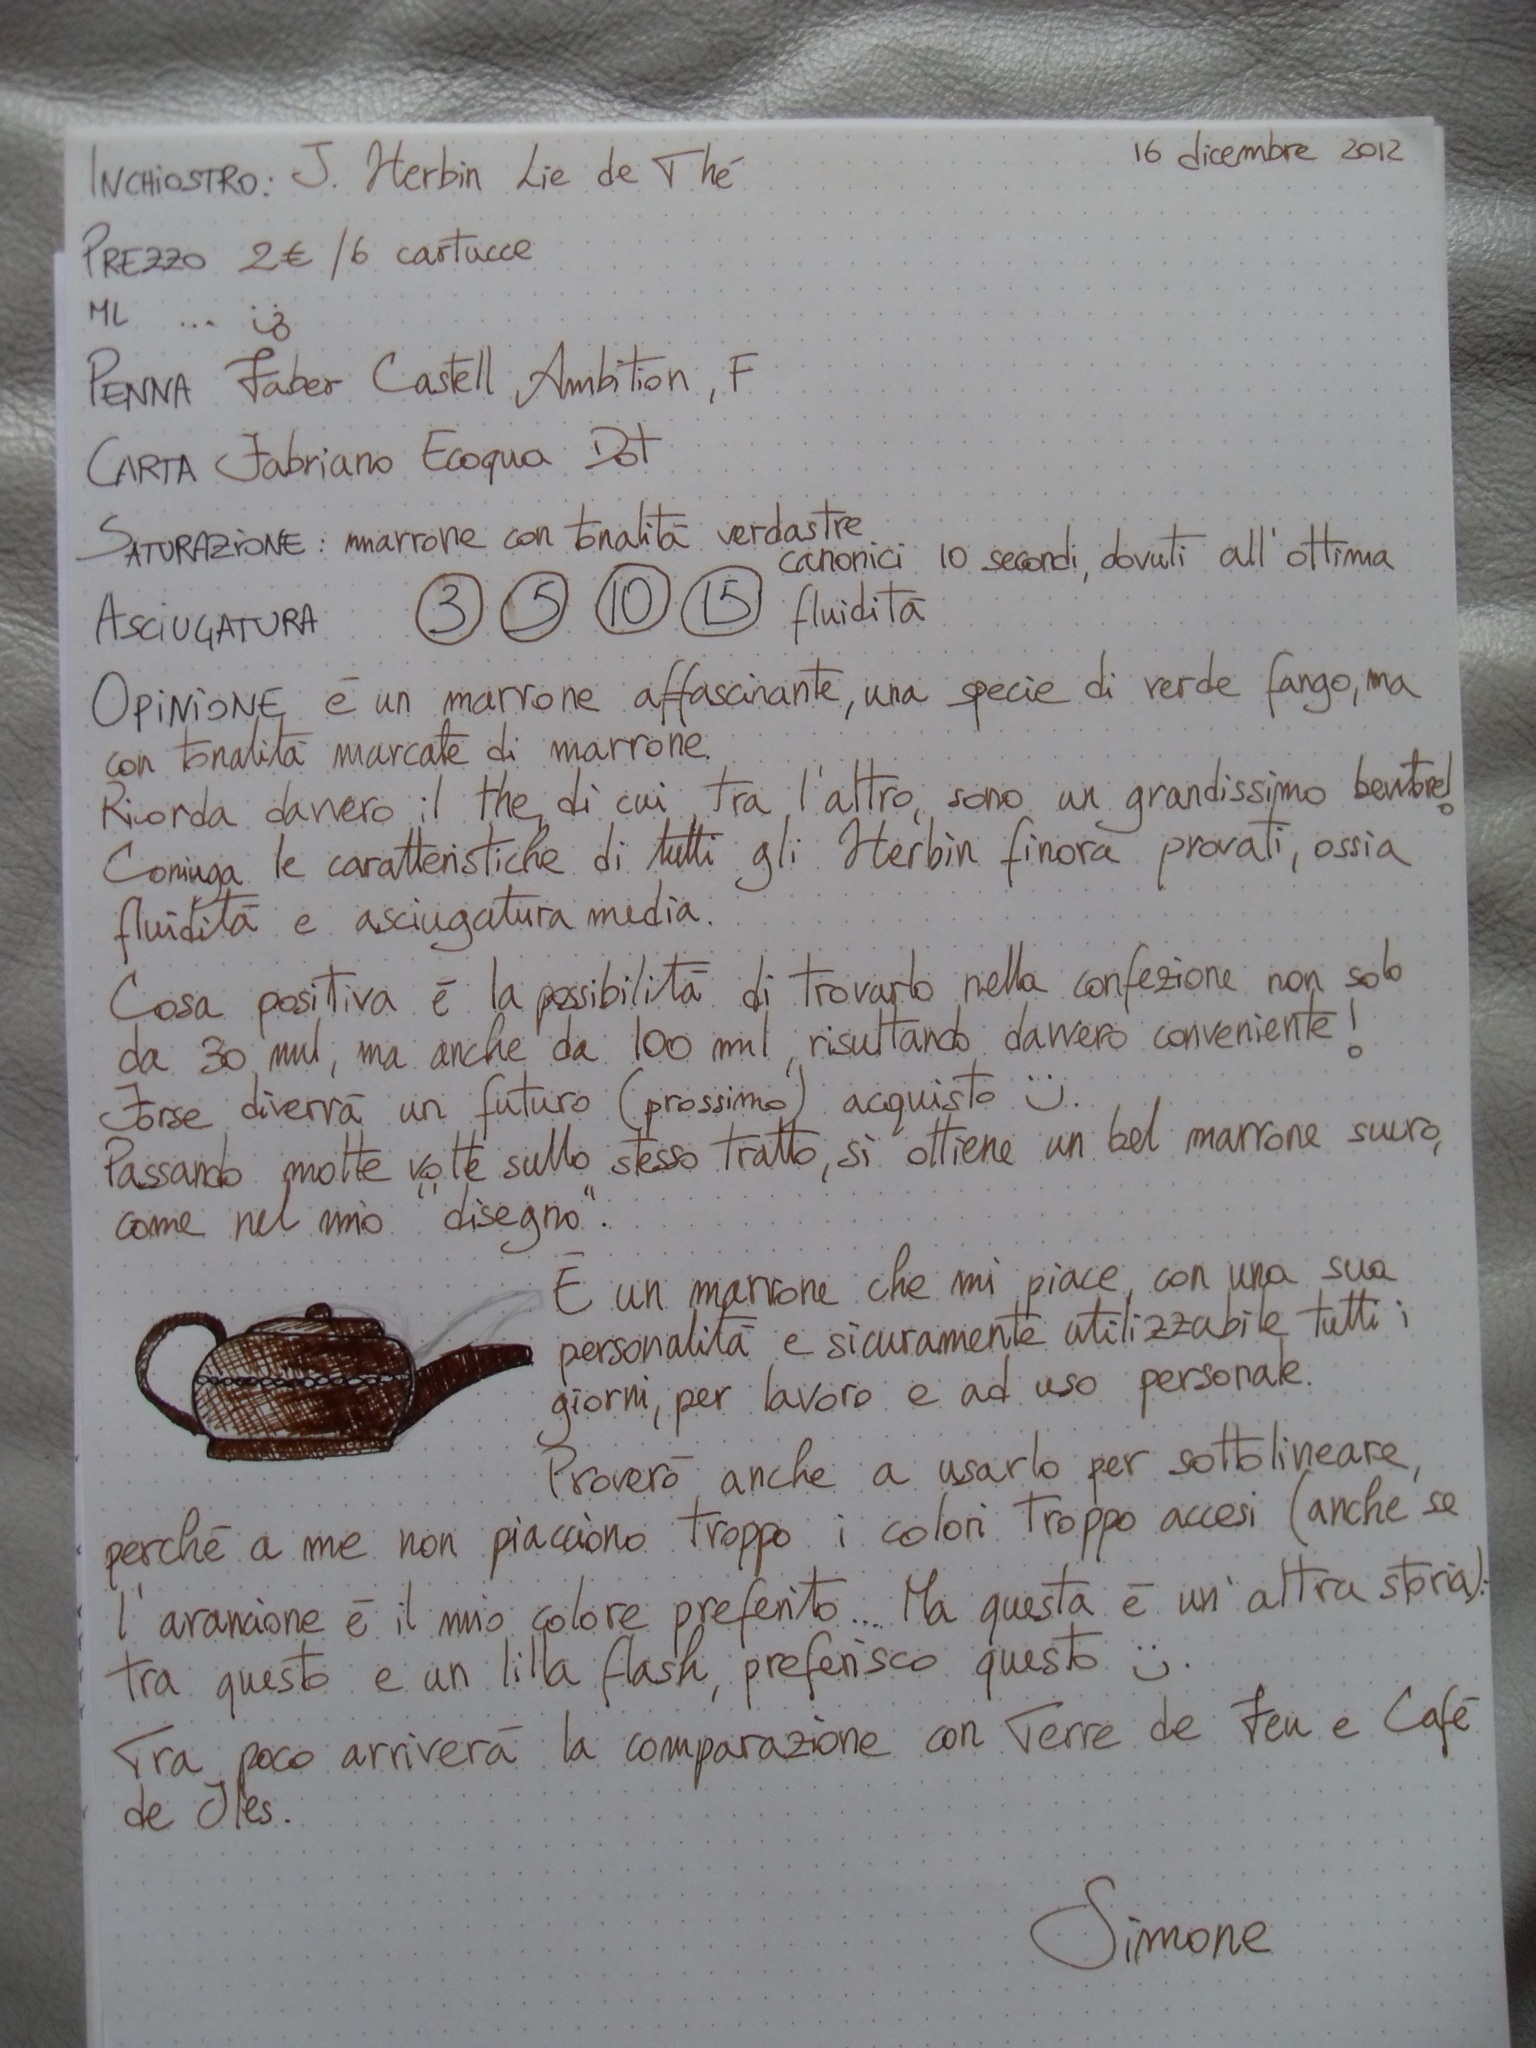 16 dicembre 2012
INCHIOSTRO: J. Herbin Lie de Thé
PREZZO 2€ /6 cartucce
ML ... :3
PENNA Faber Castell Ambition, F
CARTA Fabriano Ecoqua Dot
SATURAZIONE: marrone con tonalità verdastre
ASCIUGATURA 3 5 10 15 canonici 10 secondi, dovuti all'ottima
fluidità
OPINIONE è un marrone affascinante, una specie di verde fango, ma
con tonalità marcate di marrone.
Ricorda davvero il the, di cui, tra l'altro, sono un grandissimo bevitore!
Coniuga le caratteristiche di tutti gli Herbin finora provati, ossia
fluidità e asciugatura media.
Cosa positiva è la possibilità di trovarlo nella confezione non solo
da 30 ml, ma anche da 100 ml, risultando davvero conveniente!
Forse diverrà un futuro (prossimo) acquisto :).
Passando molte volte sullo stesso tratto, si ottiene un bel marrone scuro,
come nel mio "disegno".
È un marrone che mi piace, con una sua
personalità e sicuramente utilizzabile tutti i
giorni, per lavoro e ad uso personale.
Proverò anche a usarlo per sottolineare,
perché a me non piacciono troppo i colori troppo accesi (anche se
l'arancione è il mio colore preferito... Ma questa è un'altra storia):
tra questo e un lilla flash, preferisco questo :).
Tra poco arriverà la comparazione con Terre de Feu e Café
de Iles.
Simone